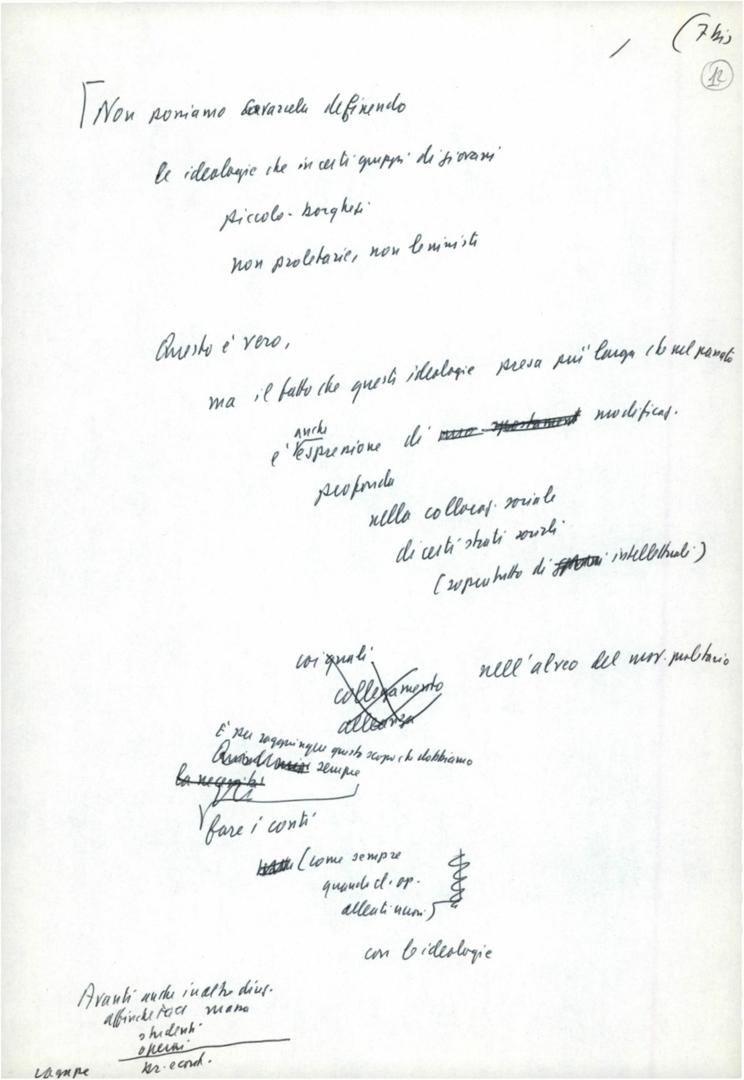 (7 bis
12
Non poniamo cavarcela definendo
le ideologie che in certi gruppi di giovani
piccolo-borghesi
non proletarie, non leninisti
Questo è vero,
ma il fatto che questi ideologie presa più larga che nel passato
anche
è espressione di modificaz.
profonda
nella collocaz. sociale
di certi strati sociali
(soprattutto di intellettuali)
coi quali
nell'alveo del mov. proletario
collegamento
alleanza
È per raggiungere questo scopo che dobbiamo
sempre
la necessità
fare i conti
(come sempre
quando cl. op.
alleati nuovi)
con le ideologie
Avanti anche in altre direz.
affinché
studenti
operai